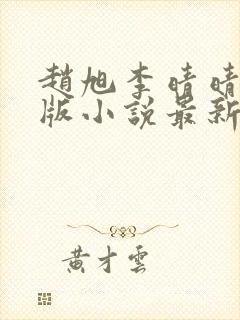 趙旭李晴晴
版小說最新
黃才雲